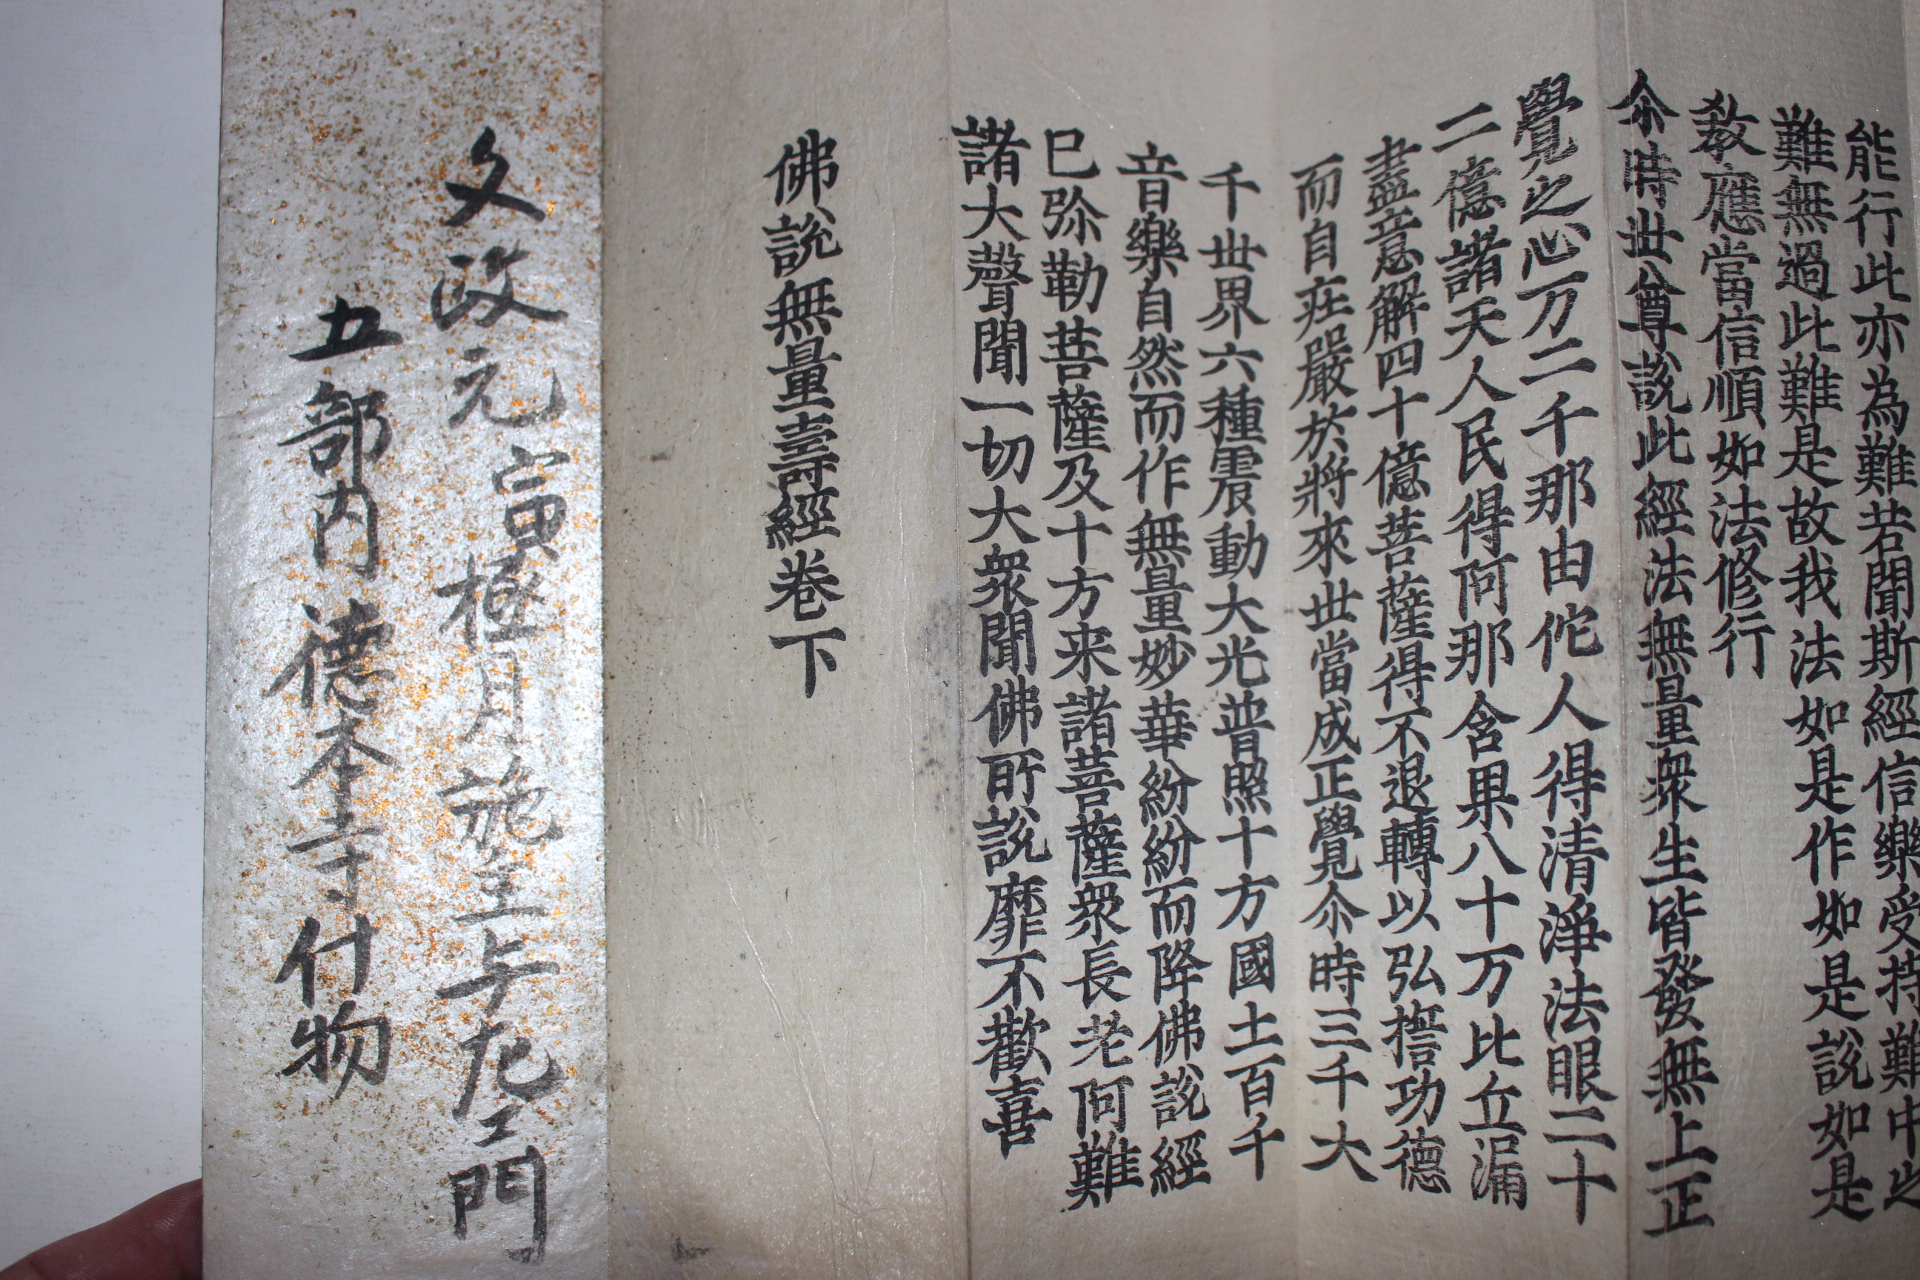 能行此亦為難若聞斯經信樂受持難中之
難無過此難是故我法如是作如是說如是
教應當信順如法修行
尒時世尊說此經法無量衆生皆發無上正
覺之心万二千那由佗人得清淨法眼二十
二億諸天人民得阿那含果八十万比丘漏
盡意解四十億菩薩得不退轉以弘誓功德
而自莊嚴於將來世當成正覺尒時三千大
千世界六種震動大光普照十方國土百千
音樂自然而作無量妙華紛紛而降佛說經
已弥勒菩薩及十方来諸菩薩衆長老阿難
諸大聲聞一切大衆聞佛所說靡不歡喜
佛說無量壽經卷下
文政元寅極月施主与左エ門
五部内德本寺付物